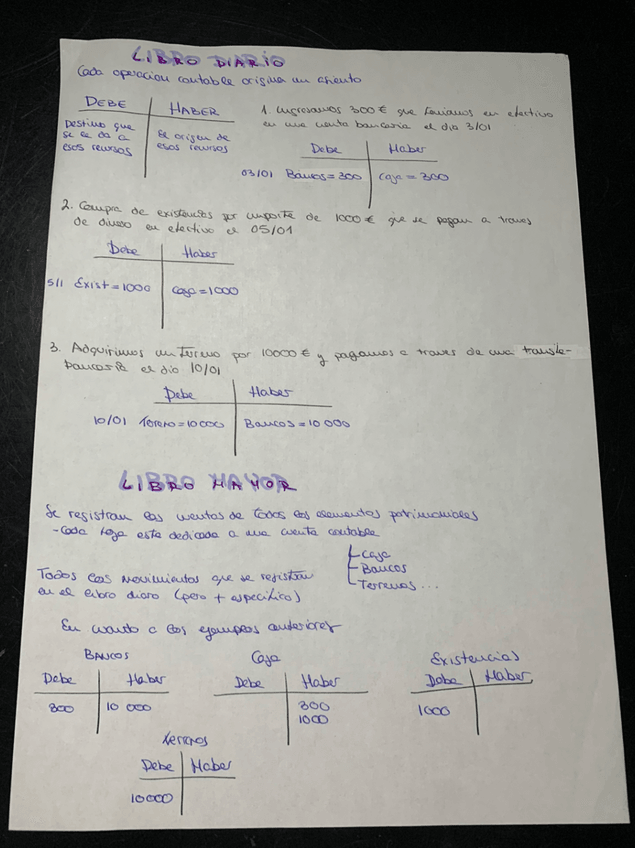 LIBRO DIARIO
Cada operacion contable origina un asiento
DEBE HABER
Destino que se le da a esos recursos
El origen de esos recursos
1. Ingresamos 300 € que teniamos en efectivo
en una cuenta bancaria el dia 3/01
Debe Haber
03/01 Bancos = 300 Caja = 300
2. Compra de existencias por importe de 1000 € que se pagan a traves
de dinero en efectivo el 05/01
Debe Haber
5/1 Exist = 1000 Caja = 1000
3. Adquirimos un terreno por 10000 € y pagamos a traves de una transfe-
bancaria el dia 10/01
Debe Haber
10/01 Terreno = 10000 Bancos = 10 000
LIBRO MAYOR
Se registran las cuentas de todos los elementos patrimoniales
- Cada hoja esta dedicada a una cuenta contable
Caja
Bancos
Terrenos...
Todos los movimientos que se registran
en el libro diario (pero + especifico)
En cuanto a los ejemplos anteriores
BANCOS Caja Existencias
Debe Haber Debe Haber Debe Haber
300 10 000 300 1000
1000
terrenos
Debe Haber
10000